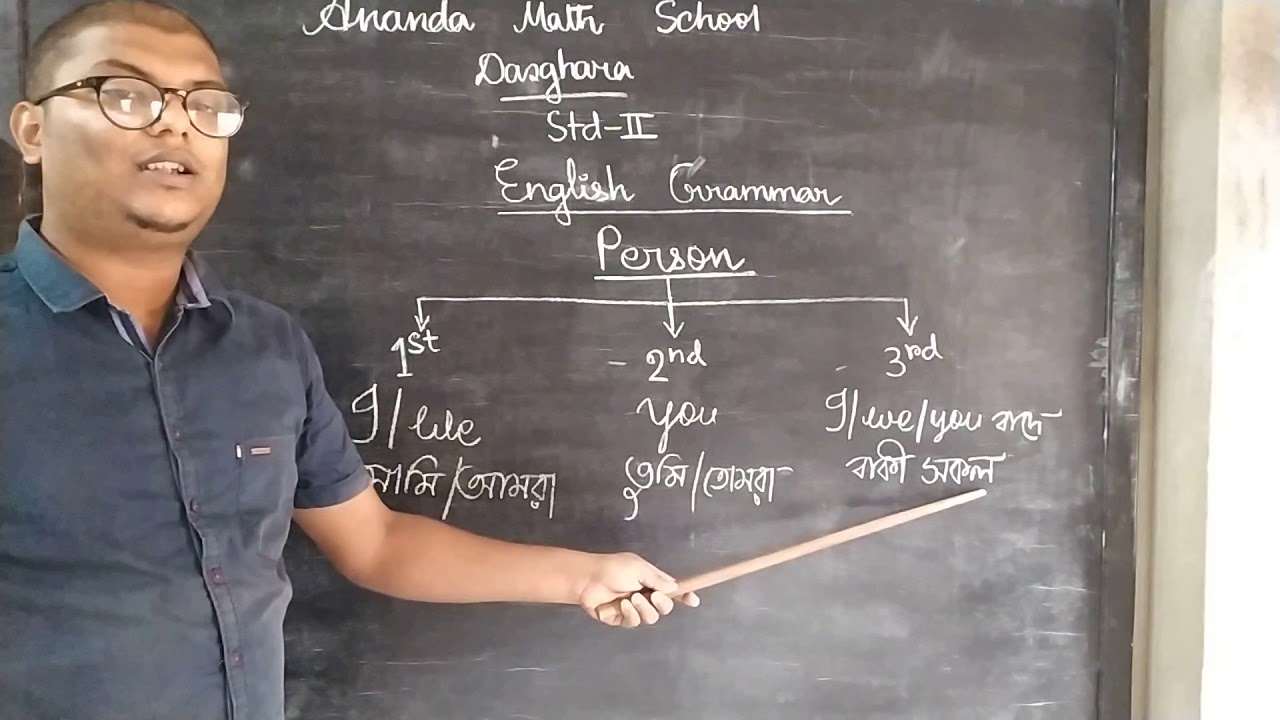 Ananda Math School
Dasghara
Std-II
English Grammar
Person
1st 2nd 3rd
I/We you I/we/you বাদে
আমি/আমরা তুমি/তোমরা বাকী সকল